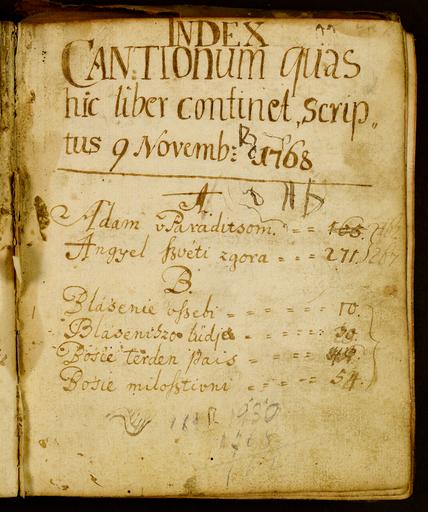 INDEX
CANTIONUM quas
hic liber continet, scrip„
tus 9 Novemb: 1768
A.
Adam vParaditsom. - - 166.
Angyel szvéti zgora - - - 271.) 267
B.
Blásenie vszebi - - - - - 10.
Blaseniszo lüdje - - - - - 30.
Bosie terden pais - - - -
Bosie milosztivni - - - - 54.
1930
1768